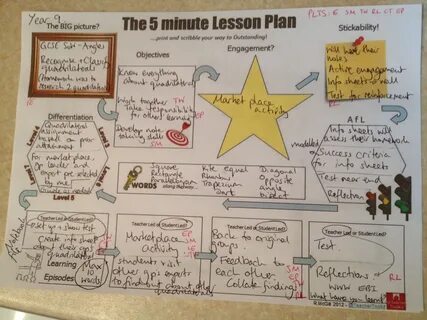 Year 9
The BIG picture?
The 5 minute Lesson Plan
...print and scribble your way to Outstanding!
PLTS: IE SM TW RL CT EP
Stickability!
GCSE Sort - Angles
Recognise + Classify
quadrilaterals
(homework was to
research 2 quadrilaterals)
IE
Objectives
Know everything
about quadrilaterals
Work together TW
Take responsibility
for others learning EP
Develop note
taking skills
SM
Engagement?
Market place
activity
Will have their
notes
Active engagement
Info sheets for wall
Test for reinforcement
Differentiation
Quadrilateral
assignment
based on prior
attainment
for market place.
Gp leader and
expert pre selected
by me
Level 5
WORDS
along the way
Square
Rectangle
Parallelogram
Kite
Rhombus
Trapezium
Sort
Equal
Diagonal
Opposite
angle
Bisect
AfL
Info sheets will
assess their homework
modelled
Success criteria
for info sheets
Test near end
Reflection
RL
Learning
Episodes
Teacher Led or Student Led?
Set up + show test
Create info sheet
about their gp's
quadrilateral
Max
10
words
Teacher Led or Student Led?
Marketplace
Activity
students visit
other gps experts
to find out about other
quadrilaterals
EP
SM
IE
TW
Teacher Led or Student Led?
Back to original
groups.
Feedback to
each other
Collate findings
SM
EP
RL
Teacher Led or Student Led?
Test
Reflections +
WWW EBI
What have you learnt?
RL
2012 - @TeacherToolkit